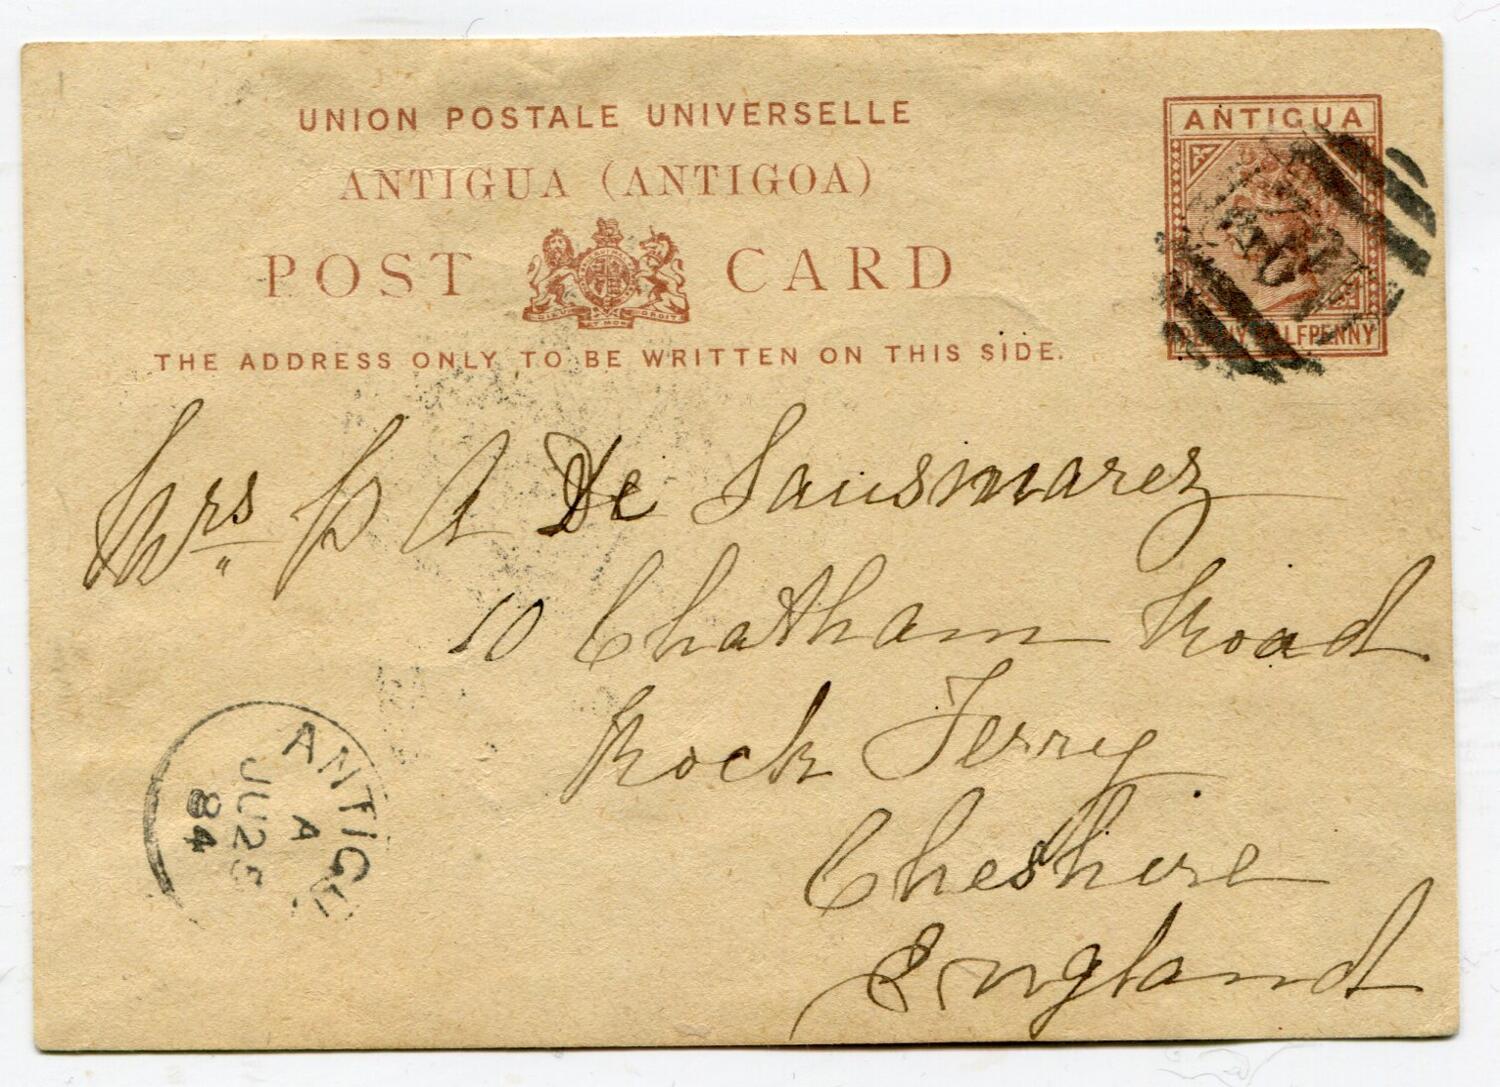 UNION POSTALE UNIVERSELLE
ANTIGUA (ANTIGOA)
POST CARD
DIEU ET MON DROIT
THE ADDRESS ONLY TO BE WRITTEN ON THIS SIDE.
ANTIGUA
PENNY HALFPENNY
Mrs P A De Sausmarez
10 Chatham Road
Rock Ferry
Cheshire
England
ANTIGU
A
JU 2
84